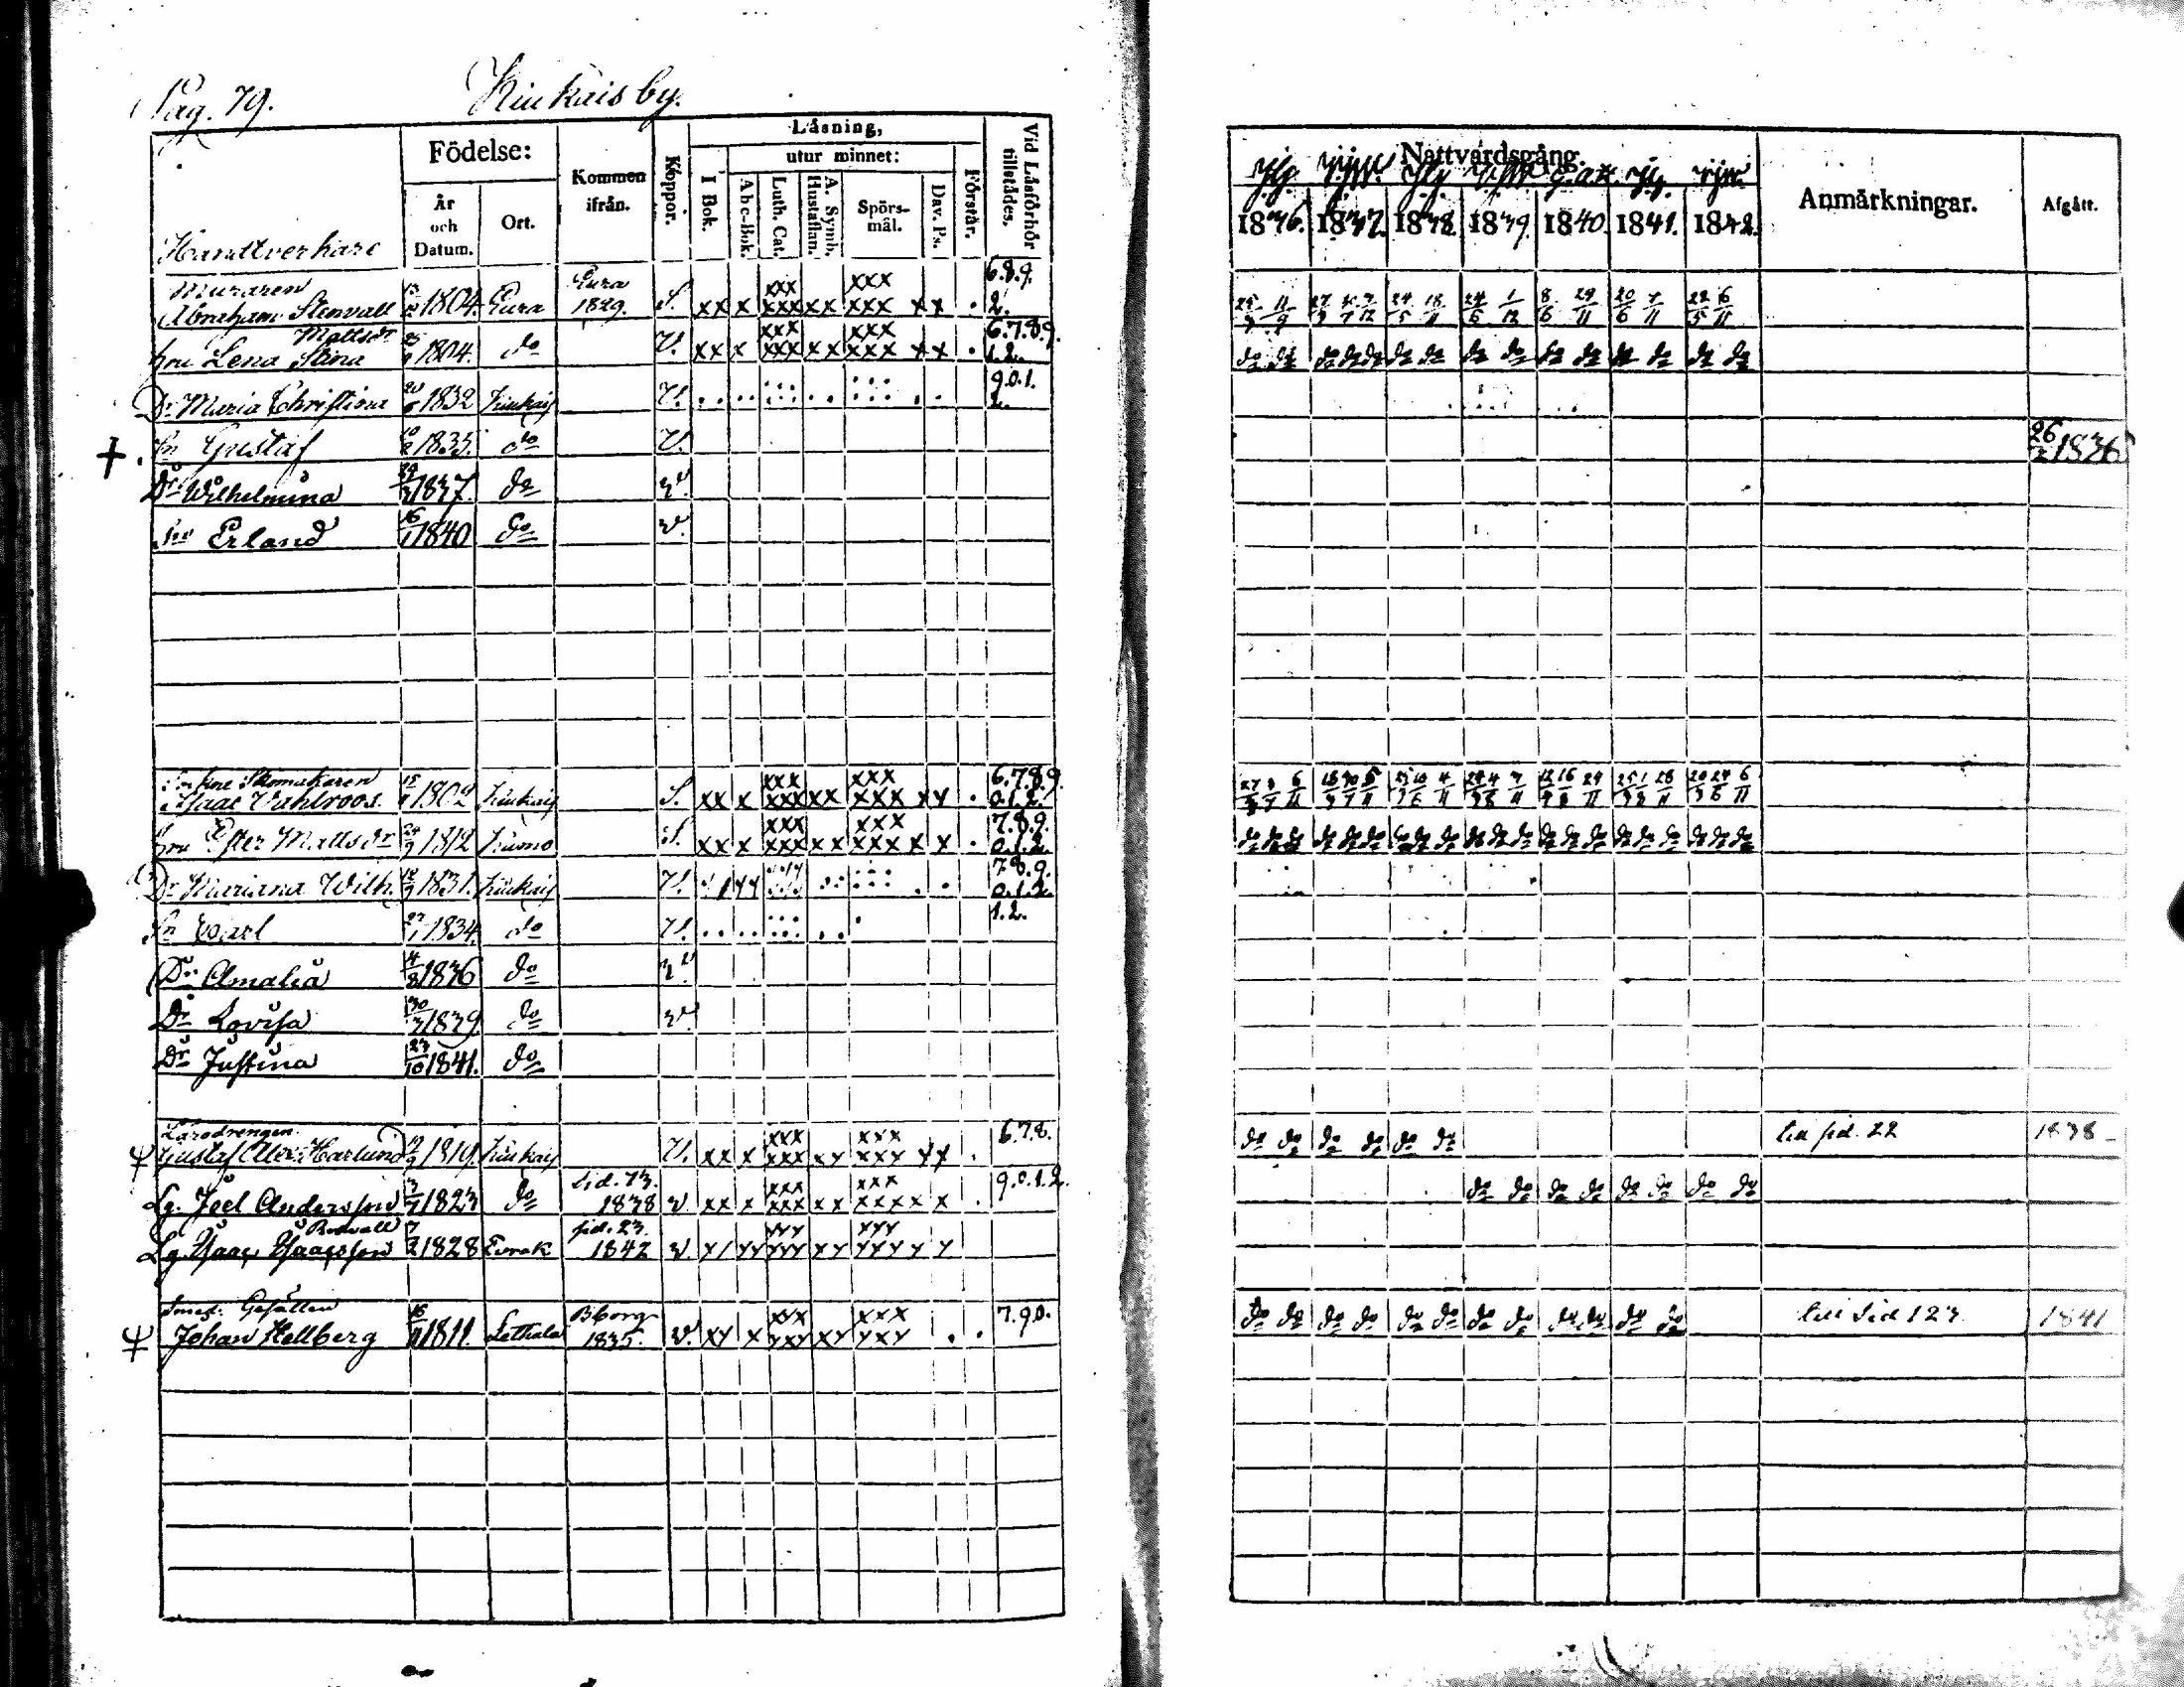 Pag. 79. Kiukais by.
Födelse:
Kommen ifrån.
Koppor.
Läsning,
I Bok.
utur minnet:
Abc-Bok.
Luth. Cat.
A. Symb. Hustaflan.
Spörsmål.
Dav. Ps.
Förstår.
Vid Läsförhör tillstädes.
År och Datum.
Ort.
Nattvardsgång.
1836. 1837. 1838. 1839. 1840. 1841. 1842.
Anmärkningar.
Afgått.
Handtverkare
Muraren Eura xxx xxx 6.8.9.
Abraham Stenvall 1804. Eura 1829. S. xx x xxx xx xxx xx . 2.
Mattsdr xxx xxx 6.7.8.9.
hru Lena Stina 1804. do V. xx x xxx xx xxx xx . 1.2.
do do do do do do do do do do do do do do do
Dr Maria Christina 20/6 1832 Kiukais V. 9.0.1. 2.
+ Sn Gustaf 1835. do V. 26/2 1836
Dr Wilhelmina 24/3 1837. do v.
Sn Erland 16/1 1840 do v.
Skomakaren xxx xxx 6.7.8.9.
Isaac Vahlroos. 1802 Kiukais S. xx x xxx xx xxx xy . 0.1.2.
xxx xxx 7.8.9.
hru Ester Mattsdr 24/9 1812 Kiumo S. xx x xxx xx xxx x x . 0.1.2.
do do do do do do do do do do do do do do do do do do do do do
Dr Mariana Wilh. 1831. Kiukais V. 7.8.9. 0.1.2.
Sn Carl 27/1 1834. do V. 1.2.
Dr Amalia 4/8 1836 do v
Dr Lovisa 30/3 1839 do v.
Dr Justina 23/10 1841. do
Lärodrengen xxx xxx 6.7.8.
Gustaf Alex. Harlund 1819. Kiukais V. xx x xxx xy xxy xx . do do do do do do till sid. 22 1838
sid. 73. xxx xxx 9.0.1.2.
Lg. Joel Andersson 3/7 1823 do 1838 v. xx x xxx xx xxxx x . do do do do do do do do
Bodvall sid. 23. yyy yyy
Lg. Isaac Isacsson 7/2 1828 Eurak 1842 v y/ yy yyy xy yyyy y
Smed. Gesällen B:borg xxx xxx 7.9.0.
Johan Hellberg 16/11 1811. Lethala 1835. v. xy x yxy xy yxy . . do do do do do do do do do do do do till Sid 123. 1841